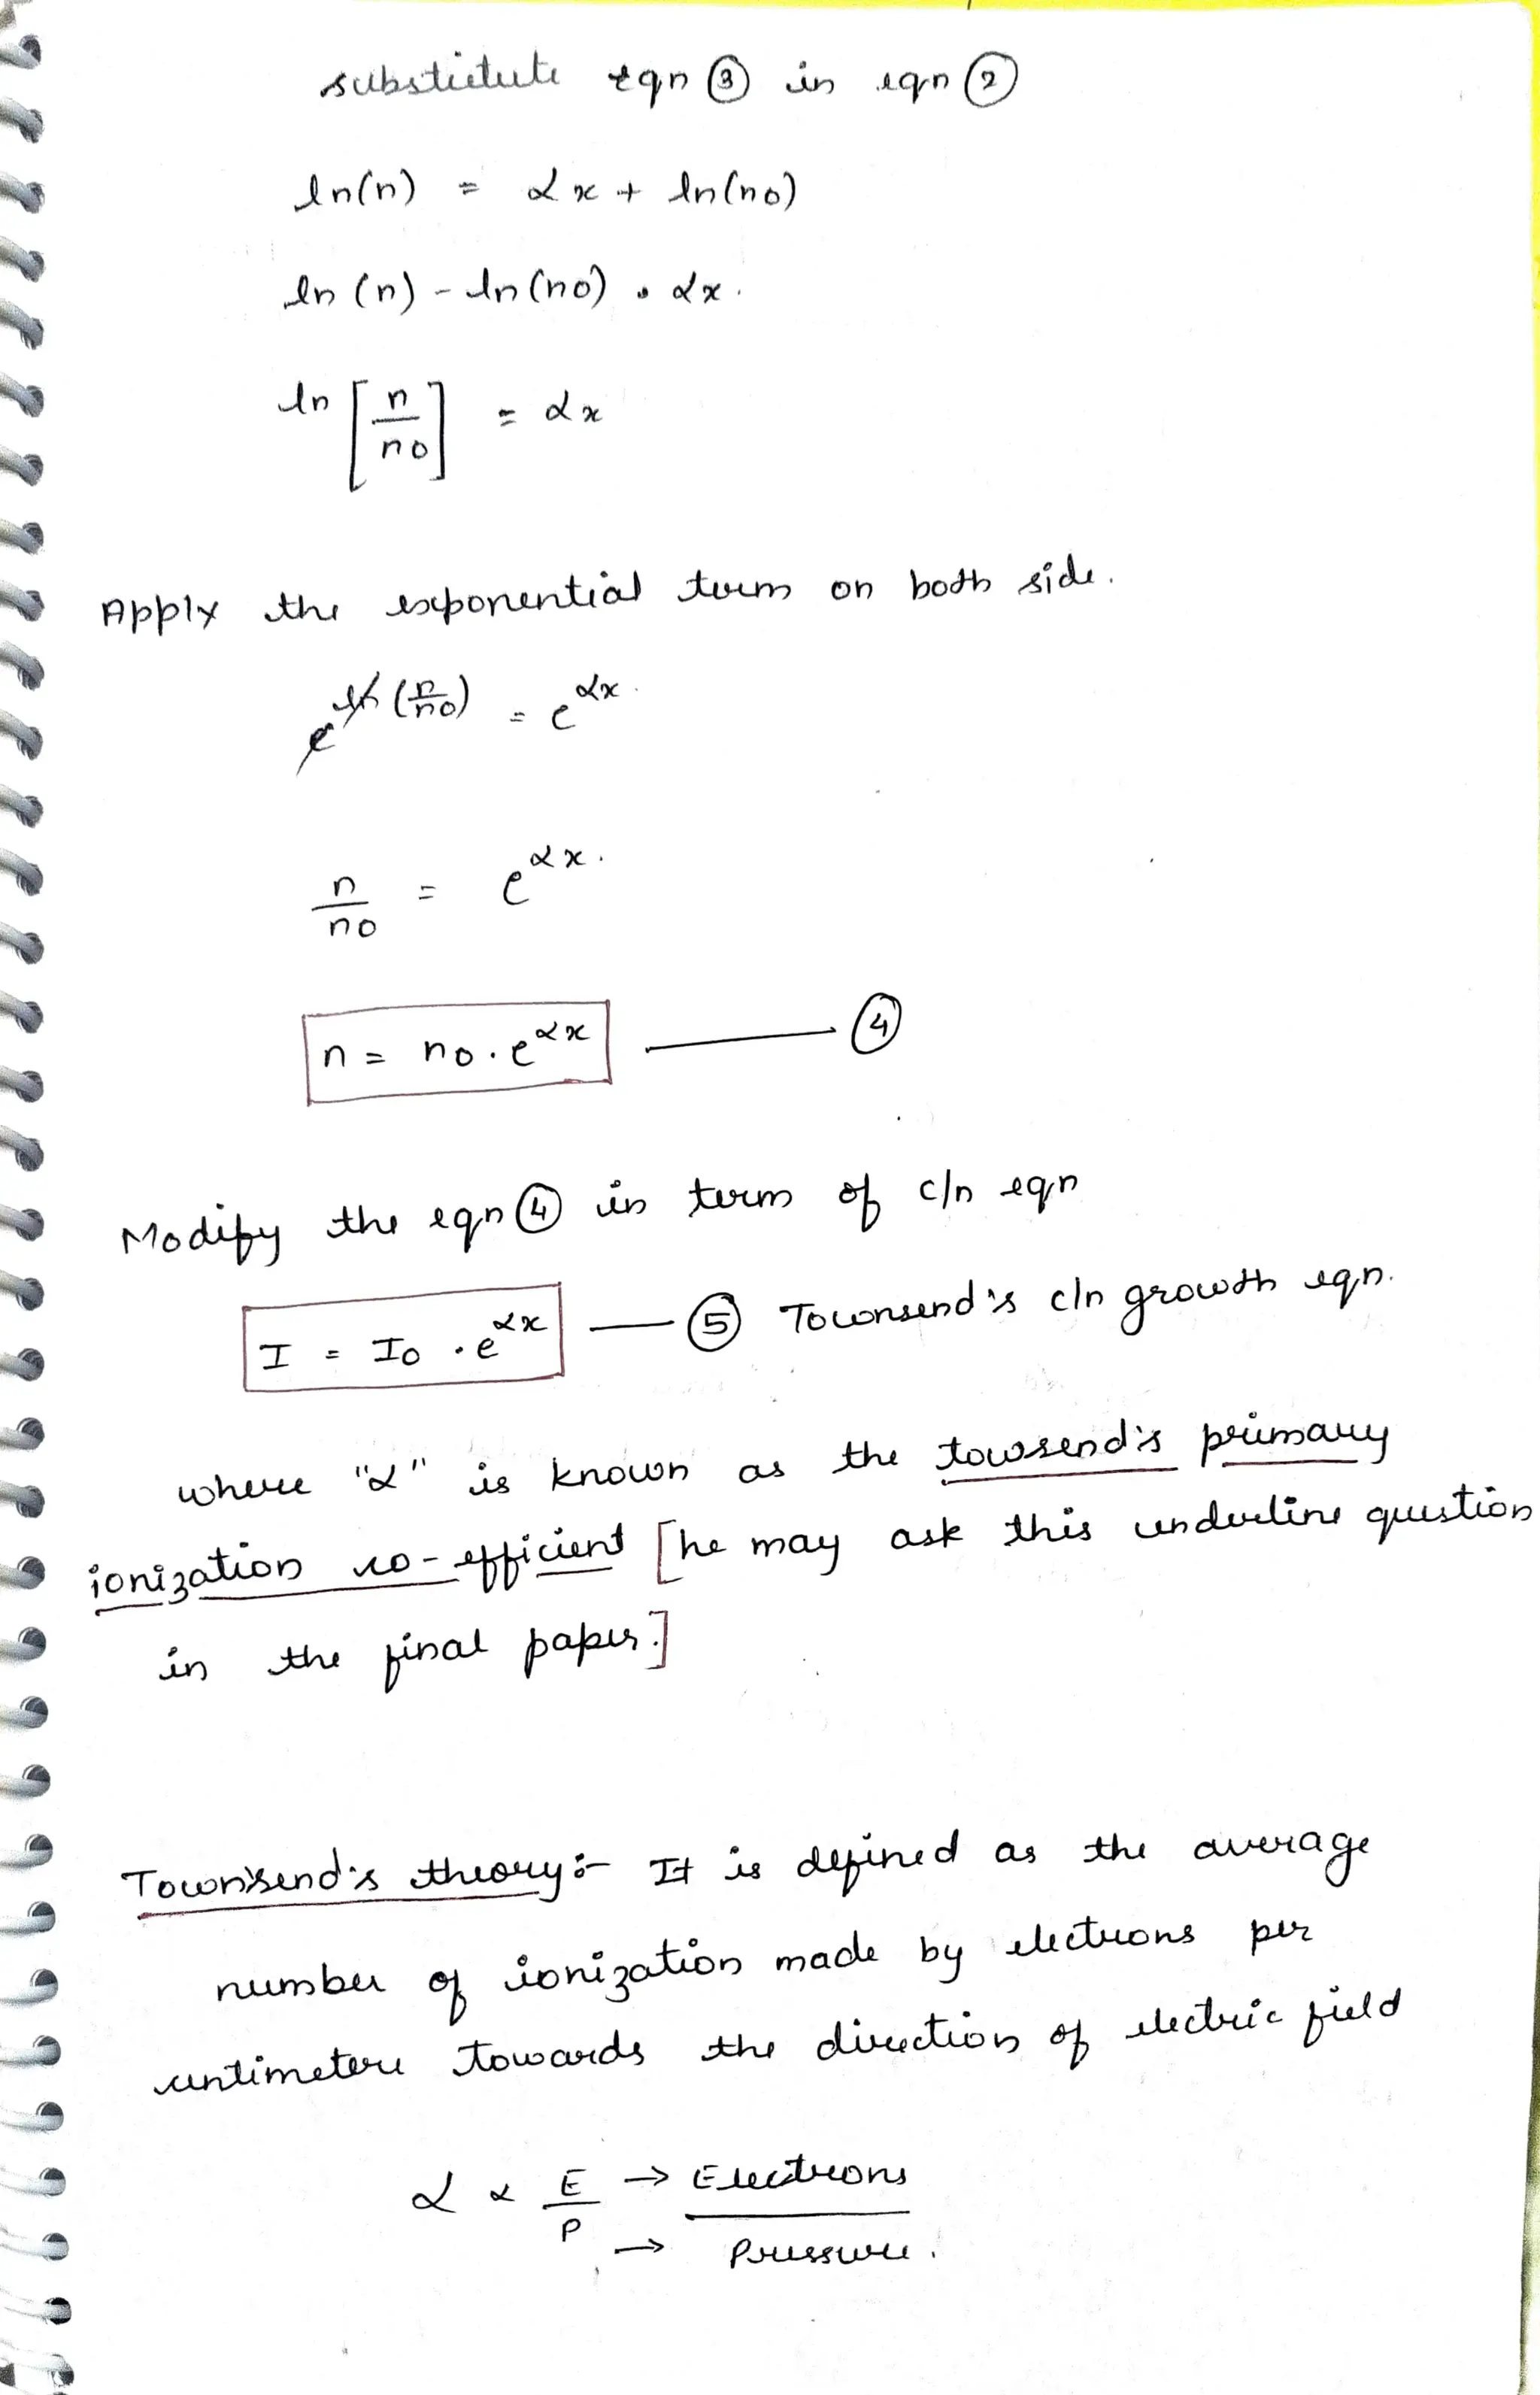 substitute eqn ③ in eqn ②
ln(n) = αx + ln(no)
ln(n) - ln(no) = αx.
ln [n/no] = αx
Apply the exponential term on both side.
e^ln(n/no) = e^αx.
n/no = e^αx.
n = no.e^αx —— ④
Modify the eqn ④ in term of c/n eqn
I = Io .e^αx — ⑤ Townsend's c/n growth eqn.
where "α" is known as the towsend's primary
ionization co-efficient [he may ask this underline question
in the final paper.]
Townsend's theory:- It is defined as the average
number of ionization made by electrons per
centimetere towards the direction of electric field
α ∝ E/P → Electrons
→ Pressure.